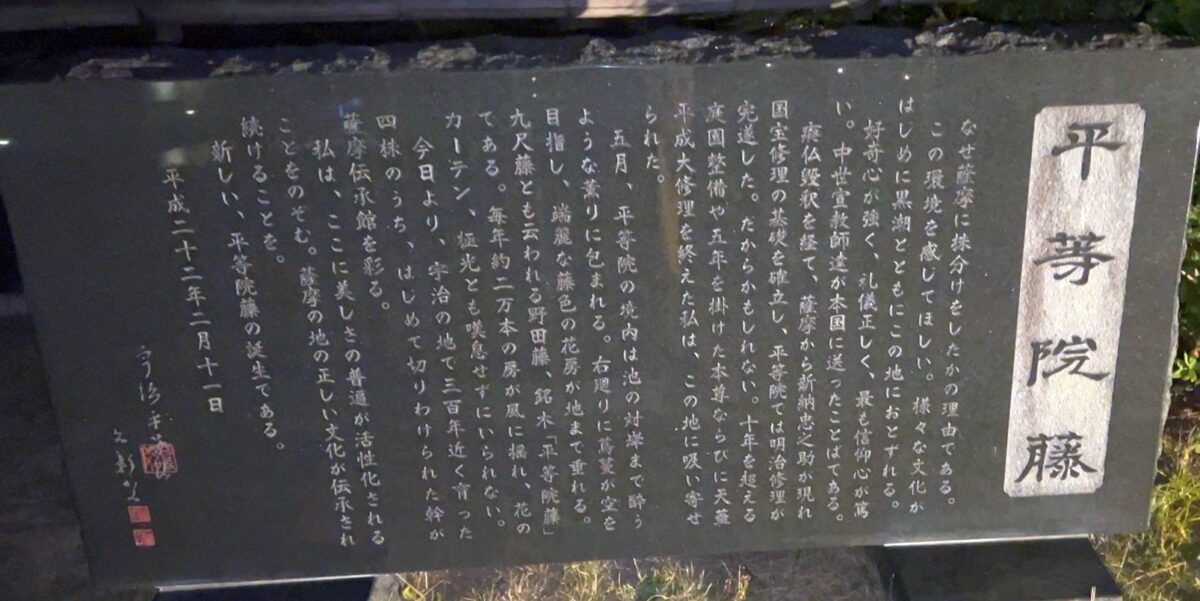 平等院藤
なぜ薩摩に株分けをしたかの理由である。
この環境を感じてほしい。様々な文化が
はじめに黒潮とともにこの地におとずれる。
好奇心が強く、礼儀正しく、最も信仰心が篤
い。中世宣教師達が本国に送ったことばである。
廃仏毀釈を経て、薩摩から新納忠之助が現れ
国宝修理の基礎を確立し、平等院では明治修理が
完遂した。だからかもしれない。十年を超える
庭園整備や五年を掛けた本尊ならびに天蓋
平成大修理を終えた私は、この地に吸い寄せ
られた。
五月、平等院の境内は池の対岸まで酔う
ような薫りに包まれる。右廻りに蔦蔓が空を
目指し、端麗な藤色の花房が地まで垂れる。
九尺藤とも云われる野田藤、銘木「平等院藤」
である。毎年約二万本の房が風に揺れ、花の
カーテン、極光とも嘆息せずにいられない。
今日より、宇治の地で三百年近く育った
四株のうち、はじめて切りわけられた幹が
薩摩伝承館を彩る。
私は、ここに美しさの普遍が活性化される
ことをのぞむ。薩摩の地の正しい文化が伝承され
続けることを。
新しい、平等院藤の誕生である。
平成二十二年二月十一日
宇治平等院